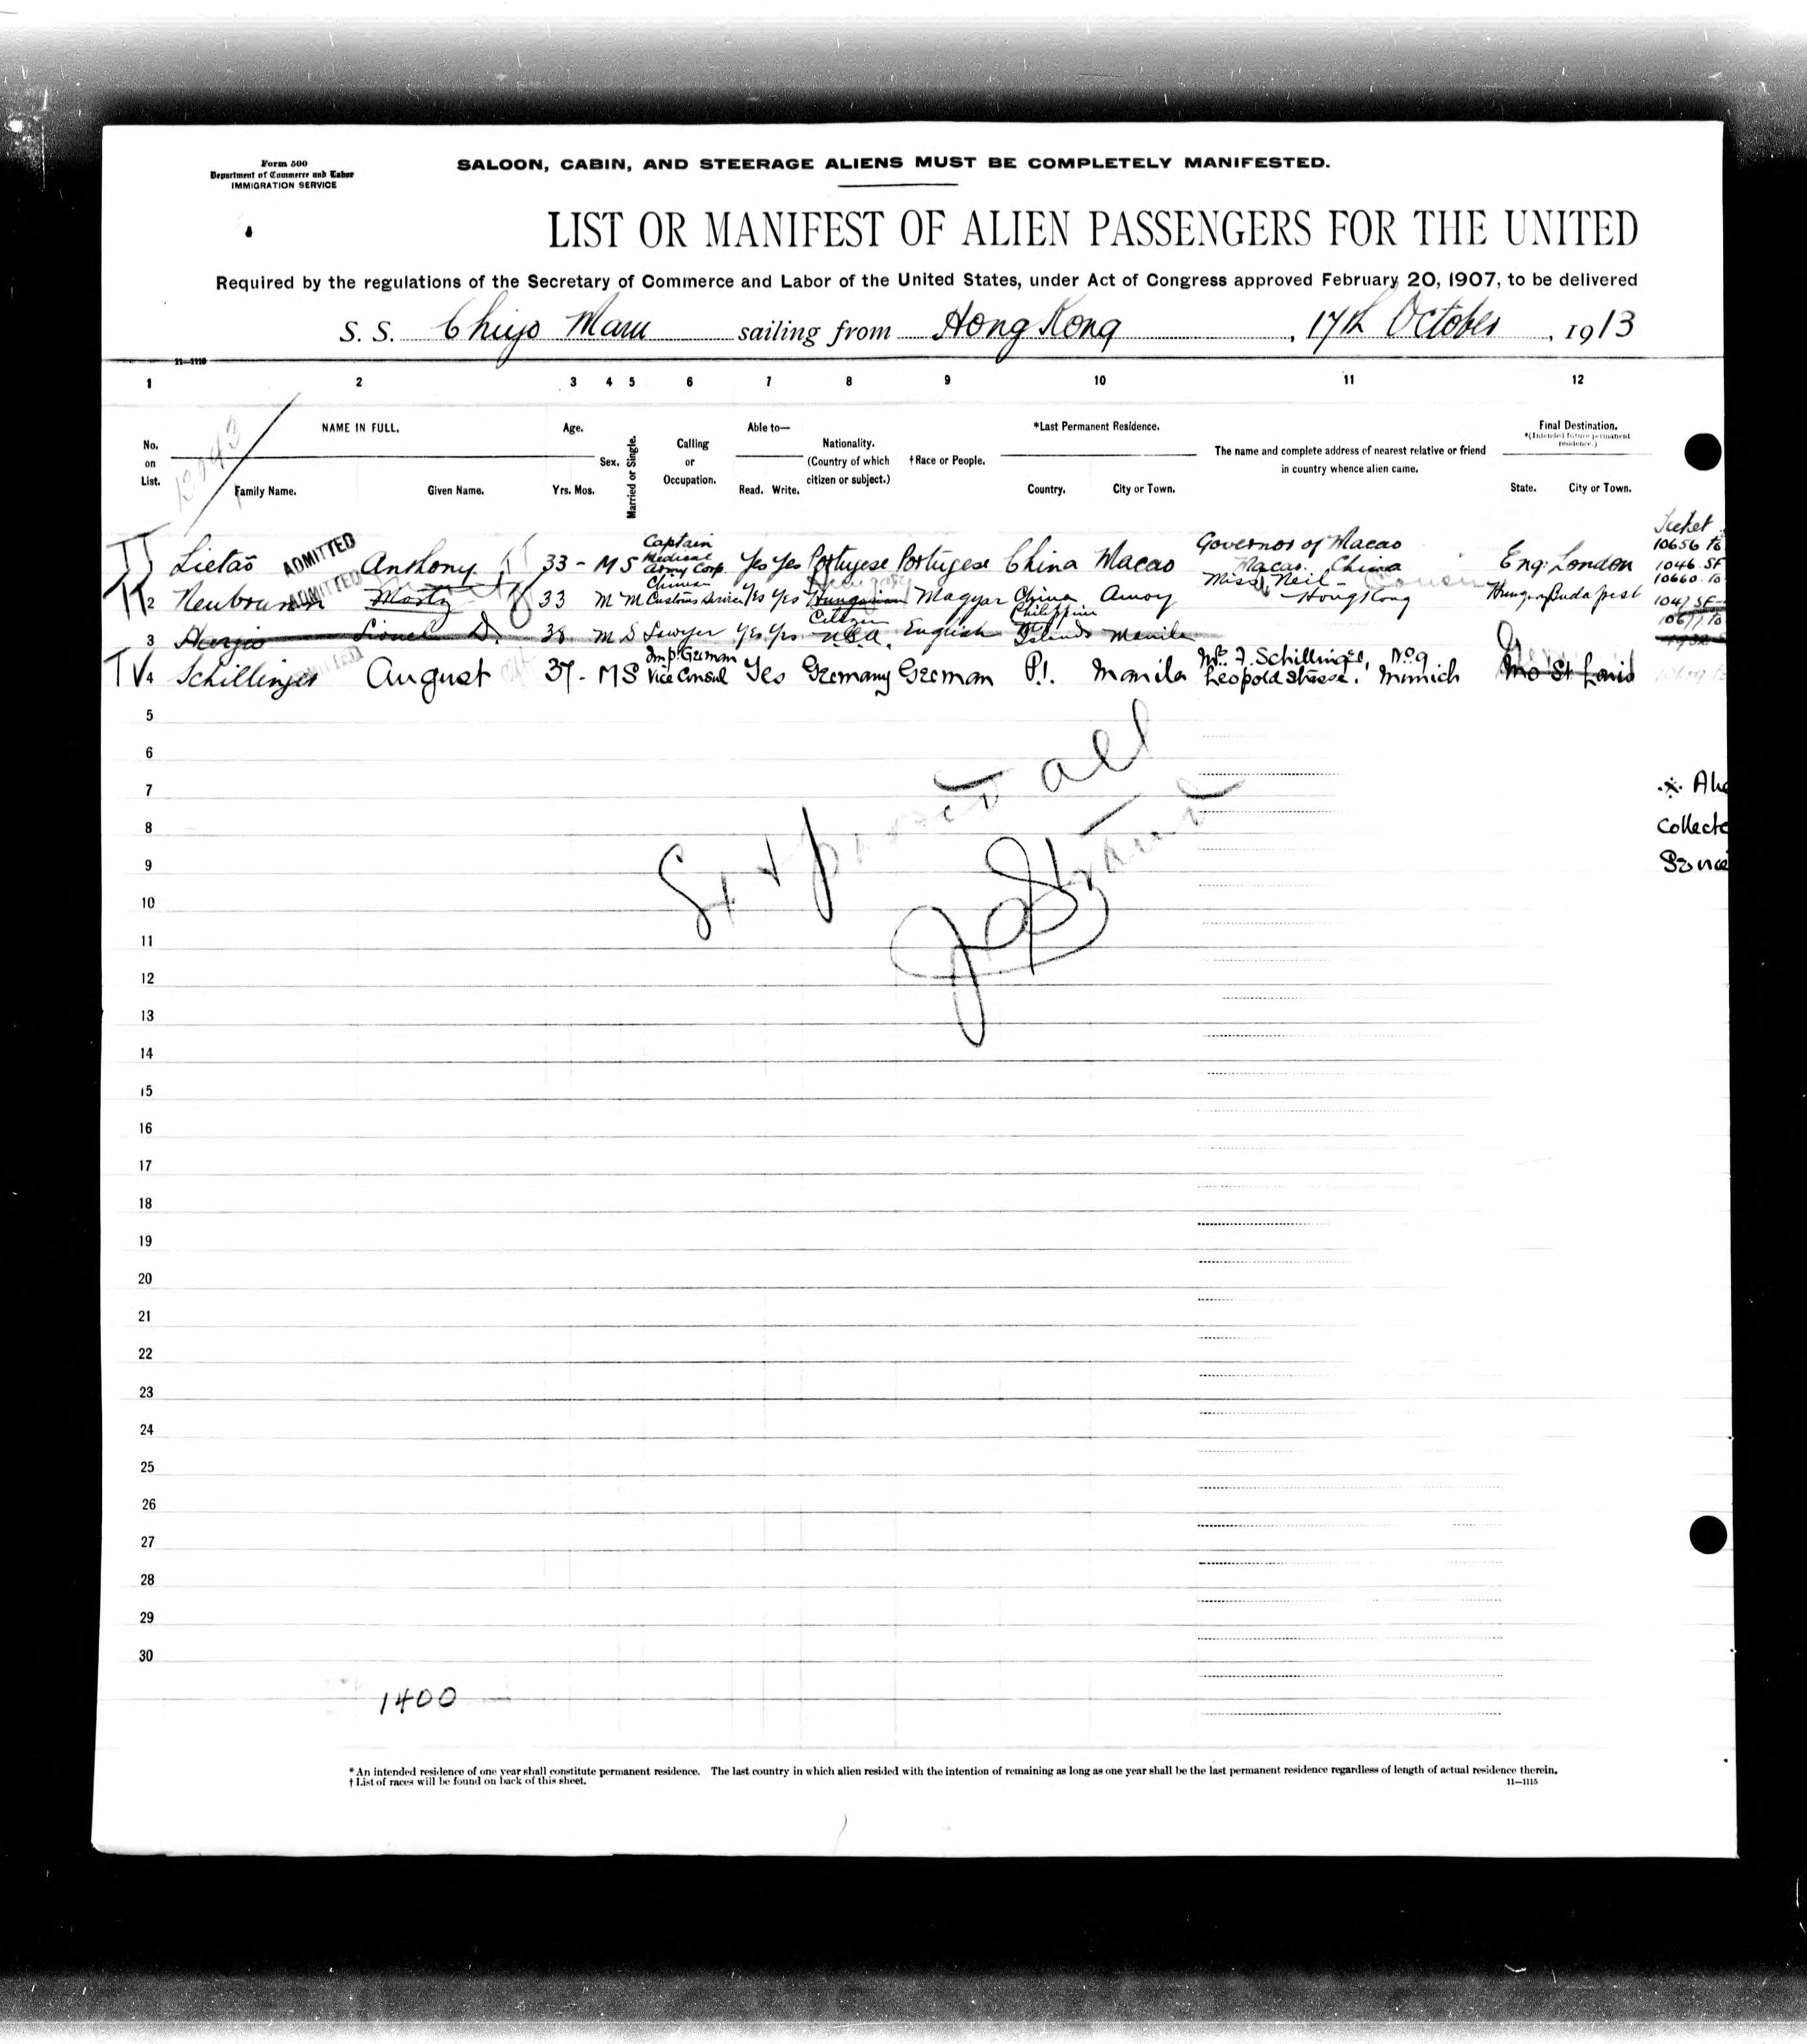 Form 500
Department of Commerce and Labor
IMMIGRATION SERVICE
SALOON, CABIN, AND STEERAGE ALIENS MUST BE COMPLETELY MANIFESTED.
LIST OR MANIFEST OF ALIEN PASSENGERS FOR THE UNITED
Required by the regulations of the Secretary of Commerce and Labor of the United States, under Act of Congress approved February 20, 1907, to be delivered
S. S. Chiyo Maru sailing from Hong Kong, 17th October, 1913
1 2 3 4 5 6 7 8 9 10 11 12
No. on List.
NAME IN FULL.
Family Name. Given Name.
Age.
Yrs. Mos.
Sex.
Married or Single.
Calling or Occupation.
Able to—
Read. Write.
Nationality.
(Country of which citizen or subject.)
†Race or People.
*Last Permanent Residence.
Country. City or Town.
The name and complete address of nearest relative or friend
in country whence alien came.
Final Destination.
*(Intended future permanent residence.)
State. City or Town.
ADMITTED Anthony 33 - M S Captain Medical Army Corp. Yes Yes Portugese Portugese China Macao Governor of Macao Macao. China Eng: London 10656 to 1046 SF
2 ADMITTED 33 M M Customs Service Yes Yes Hungarian Magyar China Amoy Miss Neil - Cousin HongKong Hungary Budapest 10660 to 1047 SF
3 Lionel D. 38 M S Lawyer Yes Yes Citizen U.S.A. English Philippin Islands Manila
4 Schillinger August 37 - M S Imp. German Vice Consul Yes Germany German P.I. Manila Mr. F. Schillinger, No 9 Leopoldstrasse, Munich Mo St Louis
5
6
7
8
9
10
11
12
13
14
15
16
17
18
19
20
21
22
23
24
25
26
27
28
29
30
passed all
1400
* An intended residence of one year shall constitute permanent residence. The last country in which alien resided with the intention of remaining as long as one year shall be the last permanent residence regardless of length of actual residence therein.
† List of races will be found on back of this sheet.
11—1115